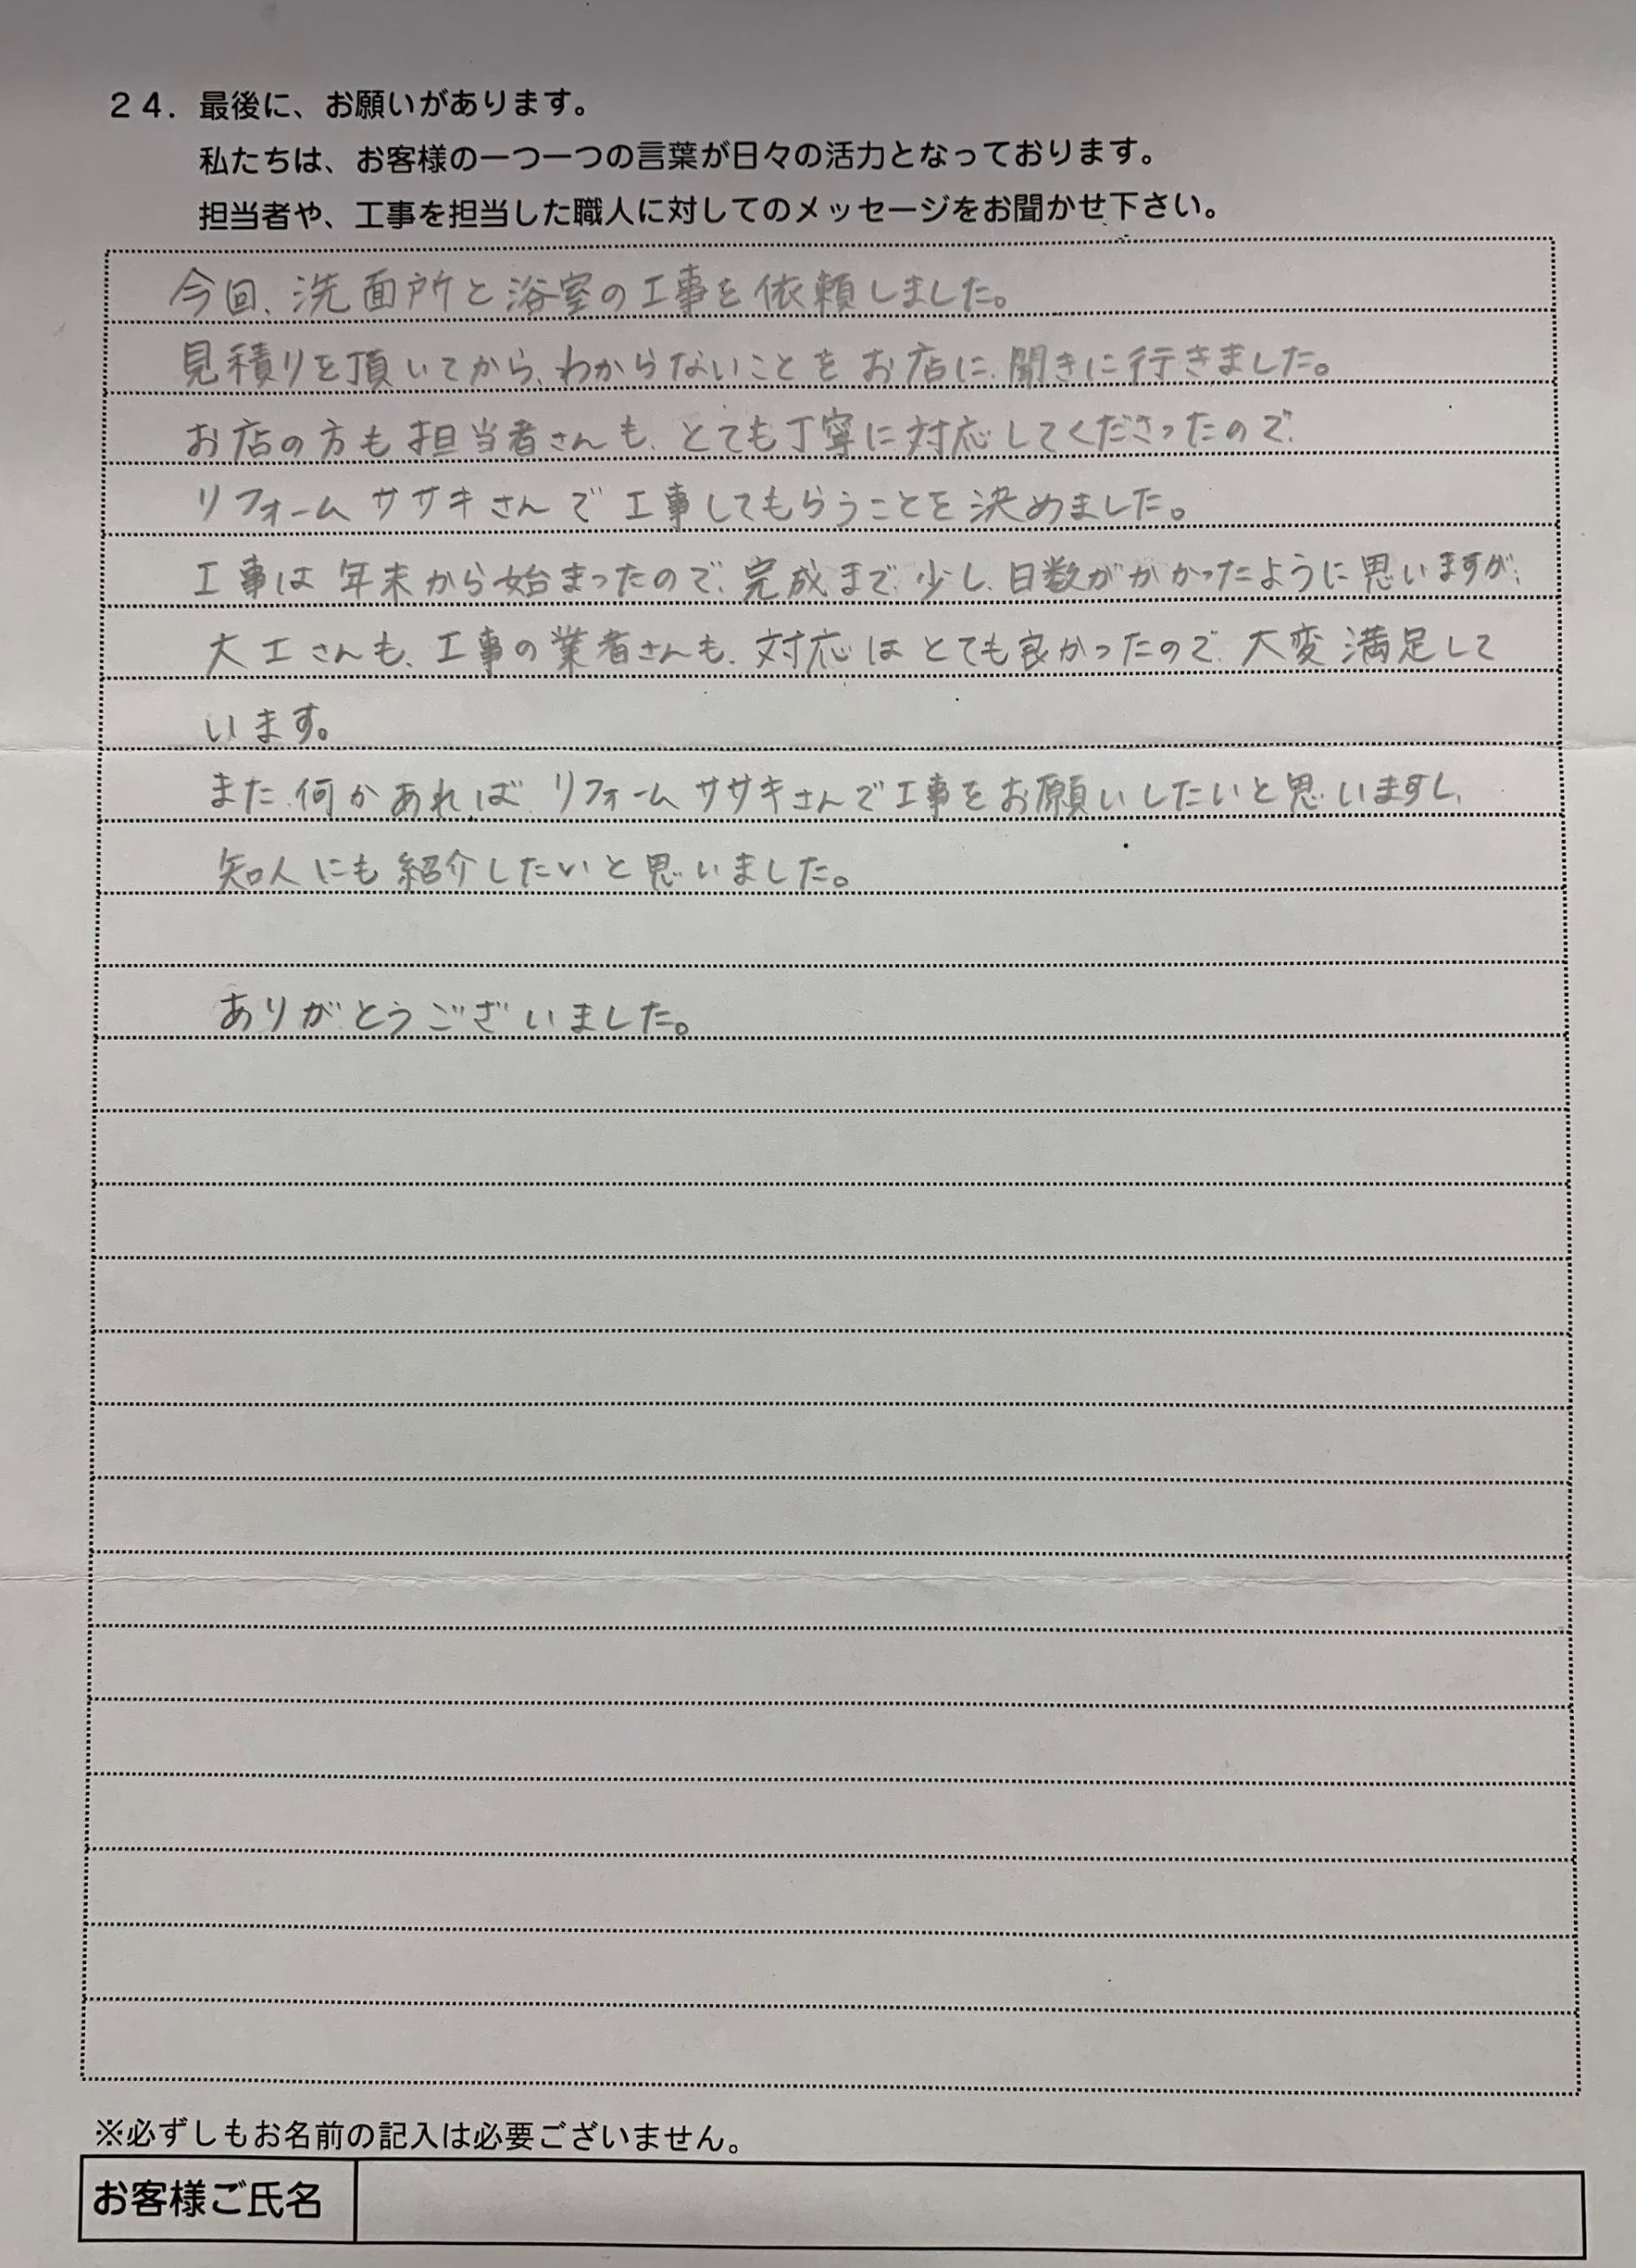 ２４．最後に、お願いがあります。
私たちは、お客様の一つ一つの言葉が日々の活力となっております。
担当者や、工事を担当した職人に対してのメッセージをお聞かせ下さい。
今回、洗面所と浴室の工事を依頼しました。
見積りを頂いてから、わからないことをお店に、聞きに行きました。
お店の方も担当者さんも、とても丁寧に対応してくださったので、
リフォームササキさんで工事してもらうことを決めました。
工事は年末から始まったので、完成まで、少し、日数がかかったように思いますが、
大工さんも、工事の業者さんも、対応はとても良かったので、大変満足して
います。
また、何かあれば、リフォームササキさんで工事をお願いしたいと思いますし、
知人にも紹介したいと思いました。
ありがとうございました。
※必ずしもお名前の記入は必要ございません。
お客様ご氏名